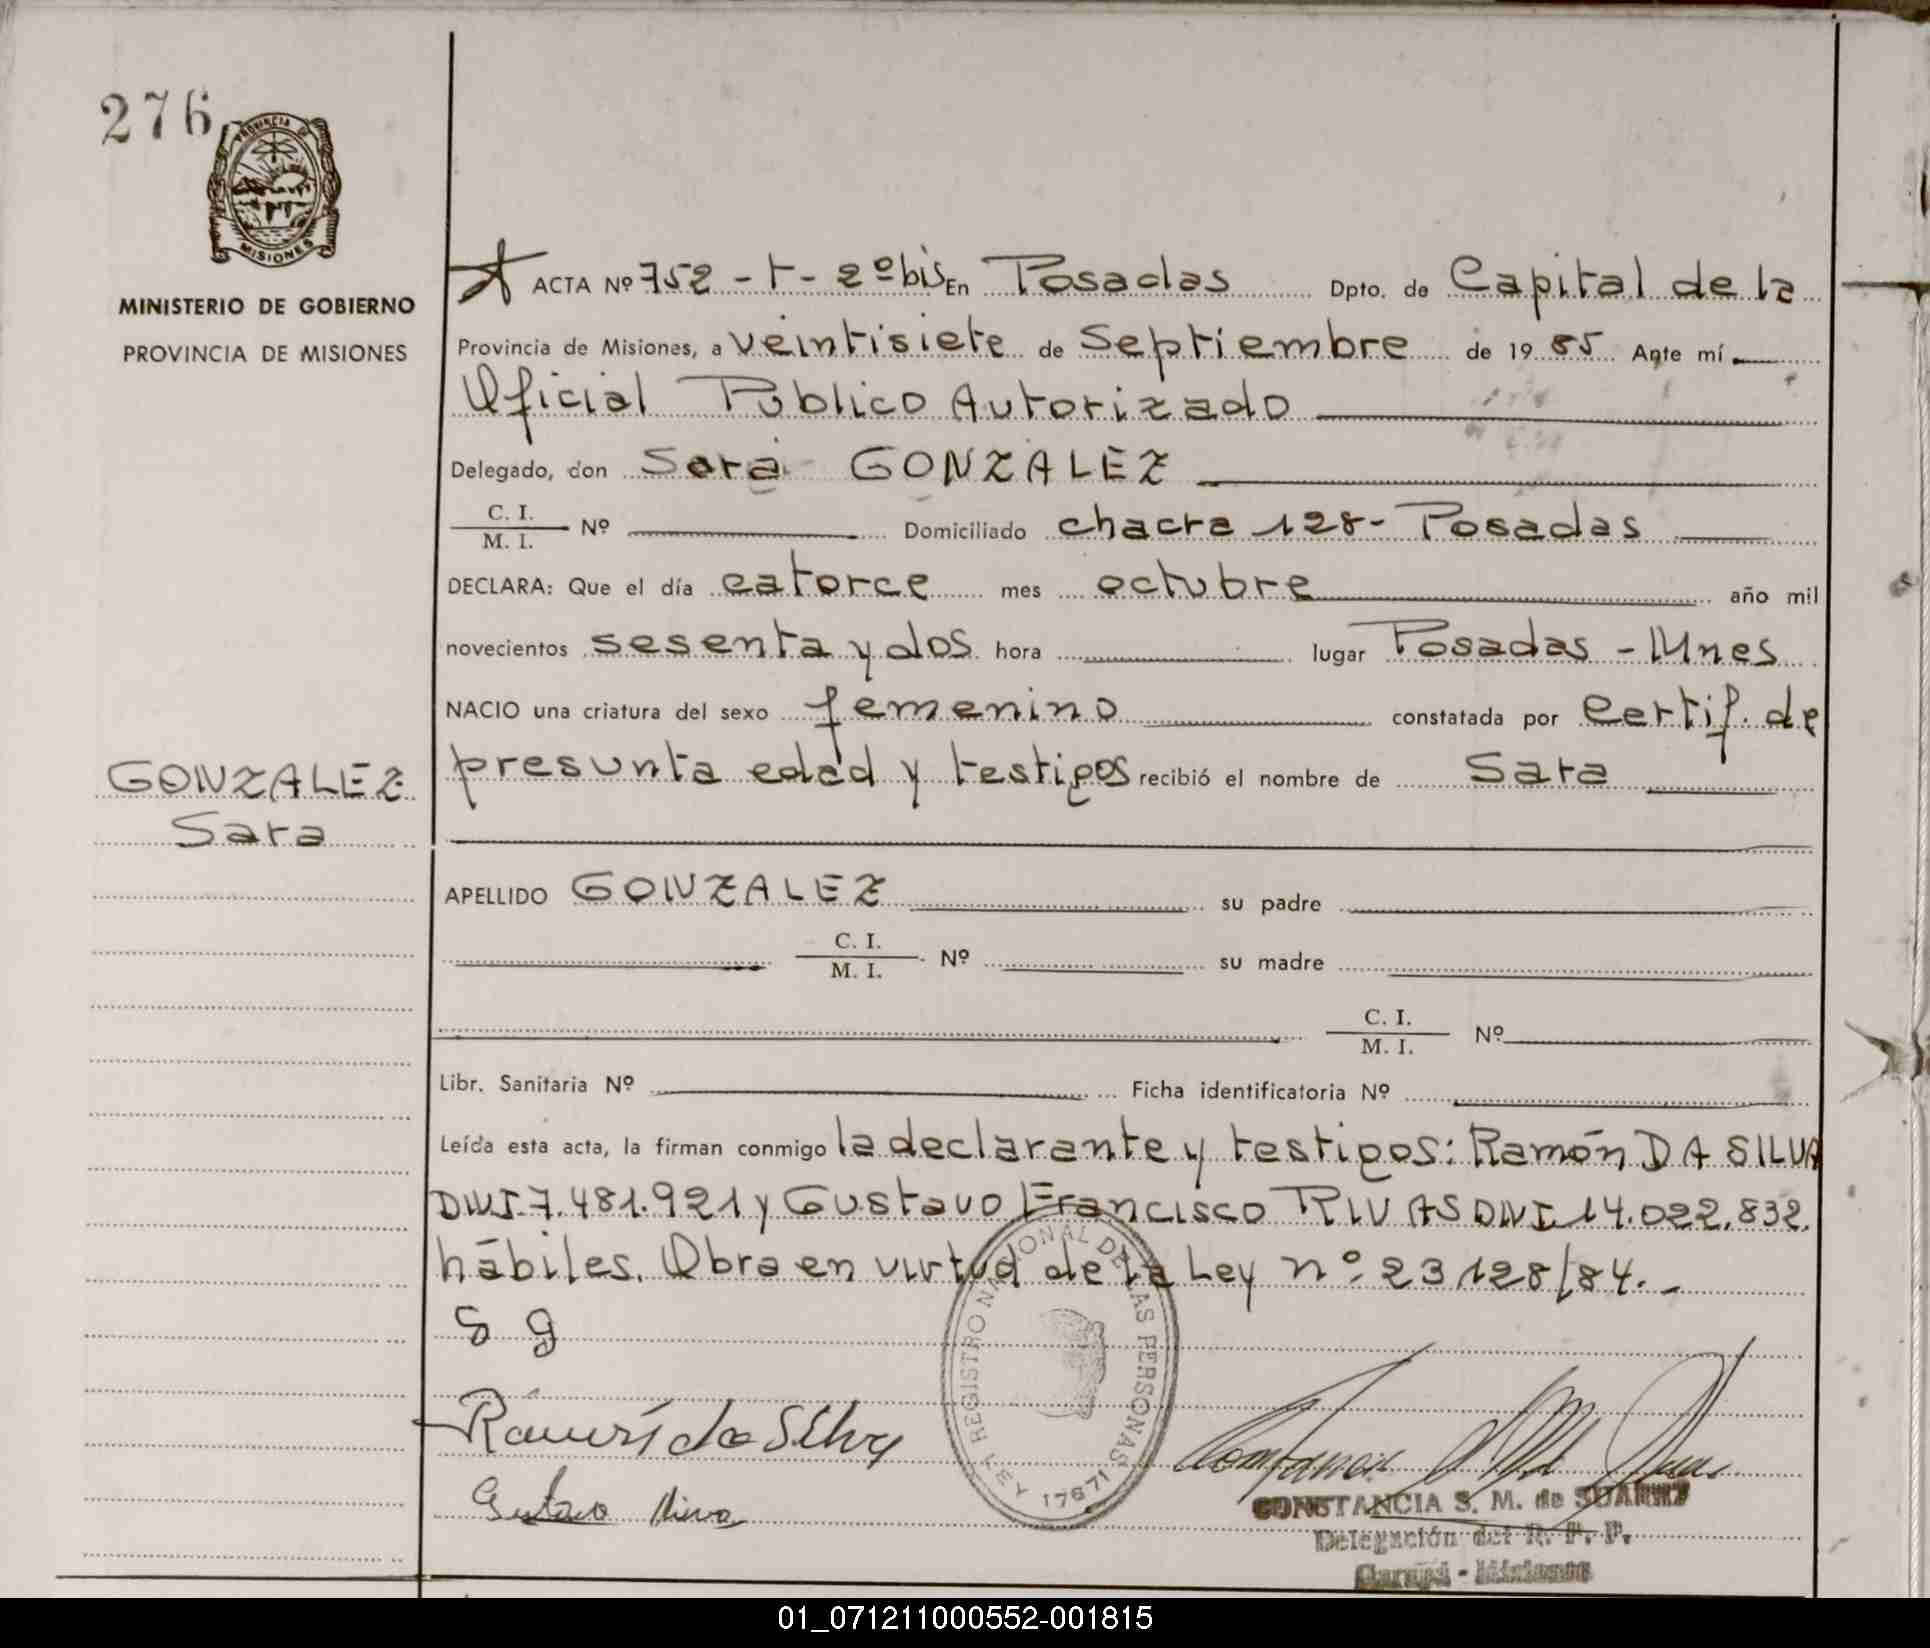 276
PROVINCIA DE
MISIONES
MINISTERIO DE GOBIERNO
PROVINCIA DE MISIONES
ACTA Nº 752 - t - 2º bis En Posadas Dpto. de Capital de la
Provincia de Misiones, a veintisiete de Septiembre de 19 85 Ante mí
Oficial Público Autorizado
Delegado, don Sara GONZALEZ
C. I.
M. I. Nº Domiciliado chacra 128 - Posadas
DECLARA: Que el día catorce mes octubre año mil
novecientos sesenta y dos hora lugar Posadas - Mnes
NACIO una criatura del sexo femenino constatada por Certif. de
presunta edad y testigos recibió el nombre de Sara
GONZALEZ
Sara
APELLIDO GONZALEZ su padre
C. I.
M. I. Nº su madre
C. I.
M. I. Nº
Libr. Sanitaria Nº Ficha identificatoria Nº
Leída esta acta, la firman conmigo la declarante y testigos: Ramón DA SILVA
DNI. 7.481.921 y Gustavo Francisco RIVAS DNI 14.022.832.
hábiles. Obra en virtud de la Ley nº 23128/84. -
S g
Ramón da Silva
Gustavo Rivas
REGISTRO NACIONAL DE LAS PERSONAS
LEY 17671
CONSTANCIA S. M. de SUAREZ
Delegación del R. P. P.
Garupá - Misiones
01_071211000552-001815